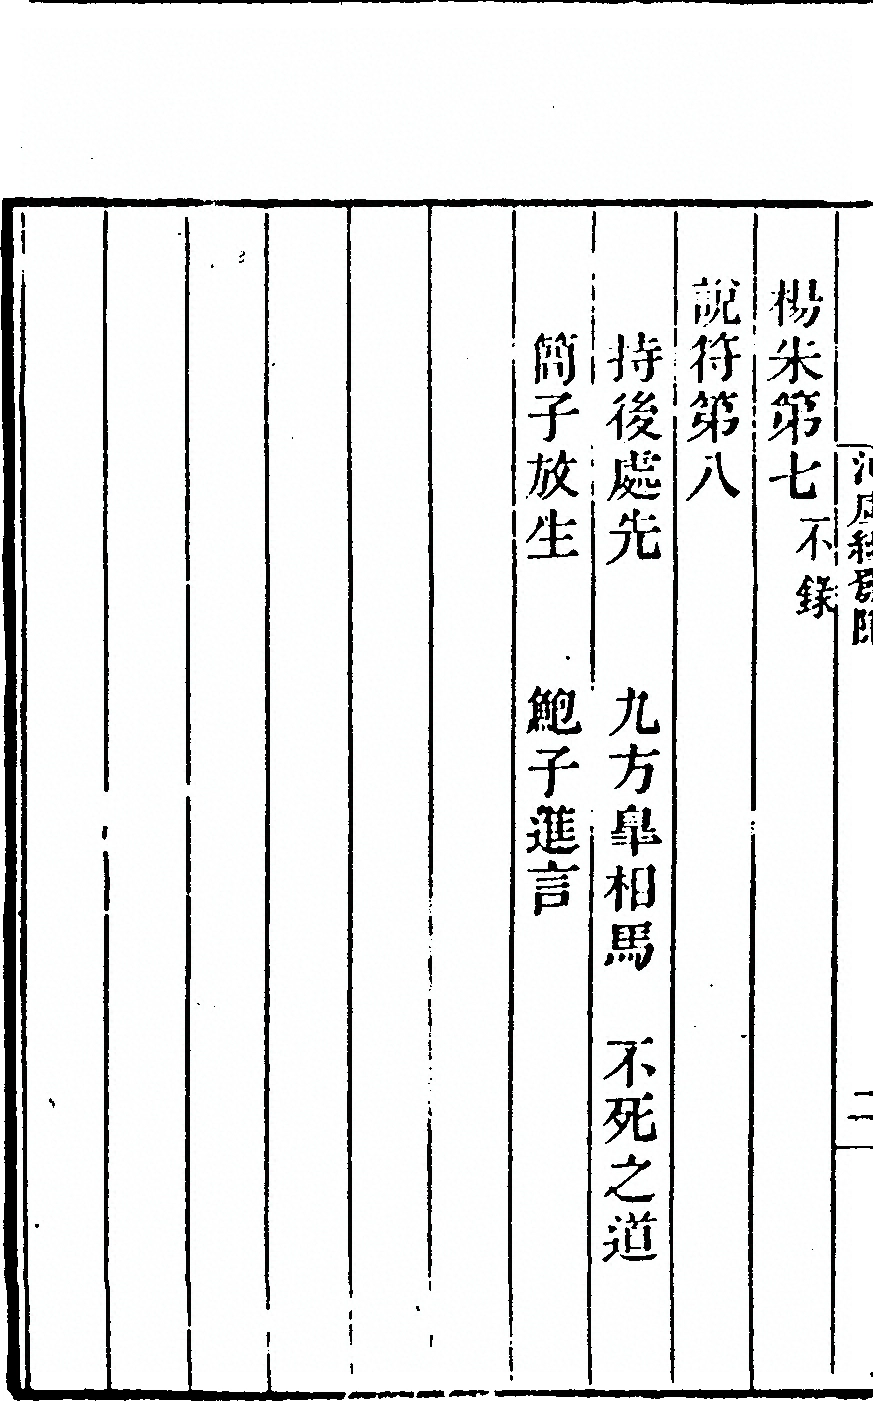 楊朱第七不錄
說符第八
持後處先 九方臯相馬 不死之道
簡子放生 鮑子進言
二